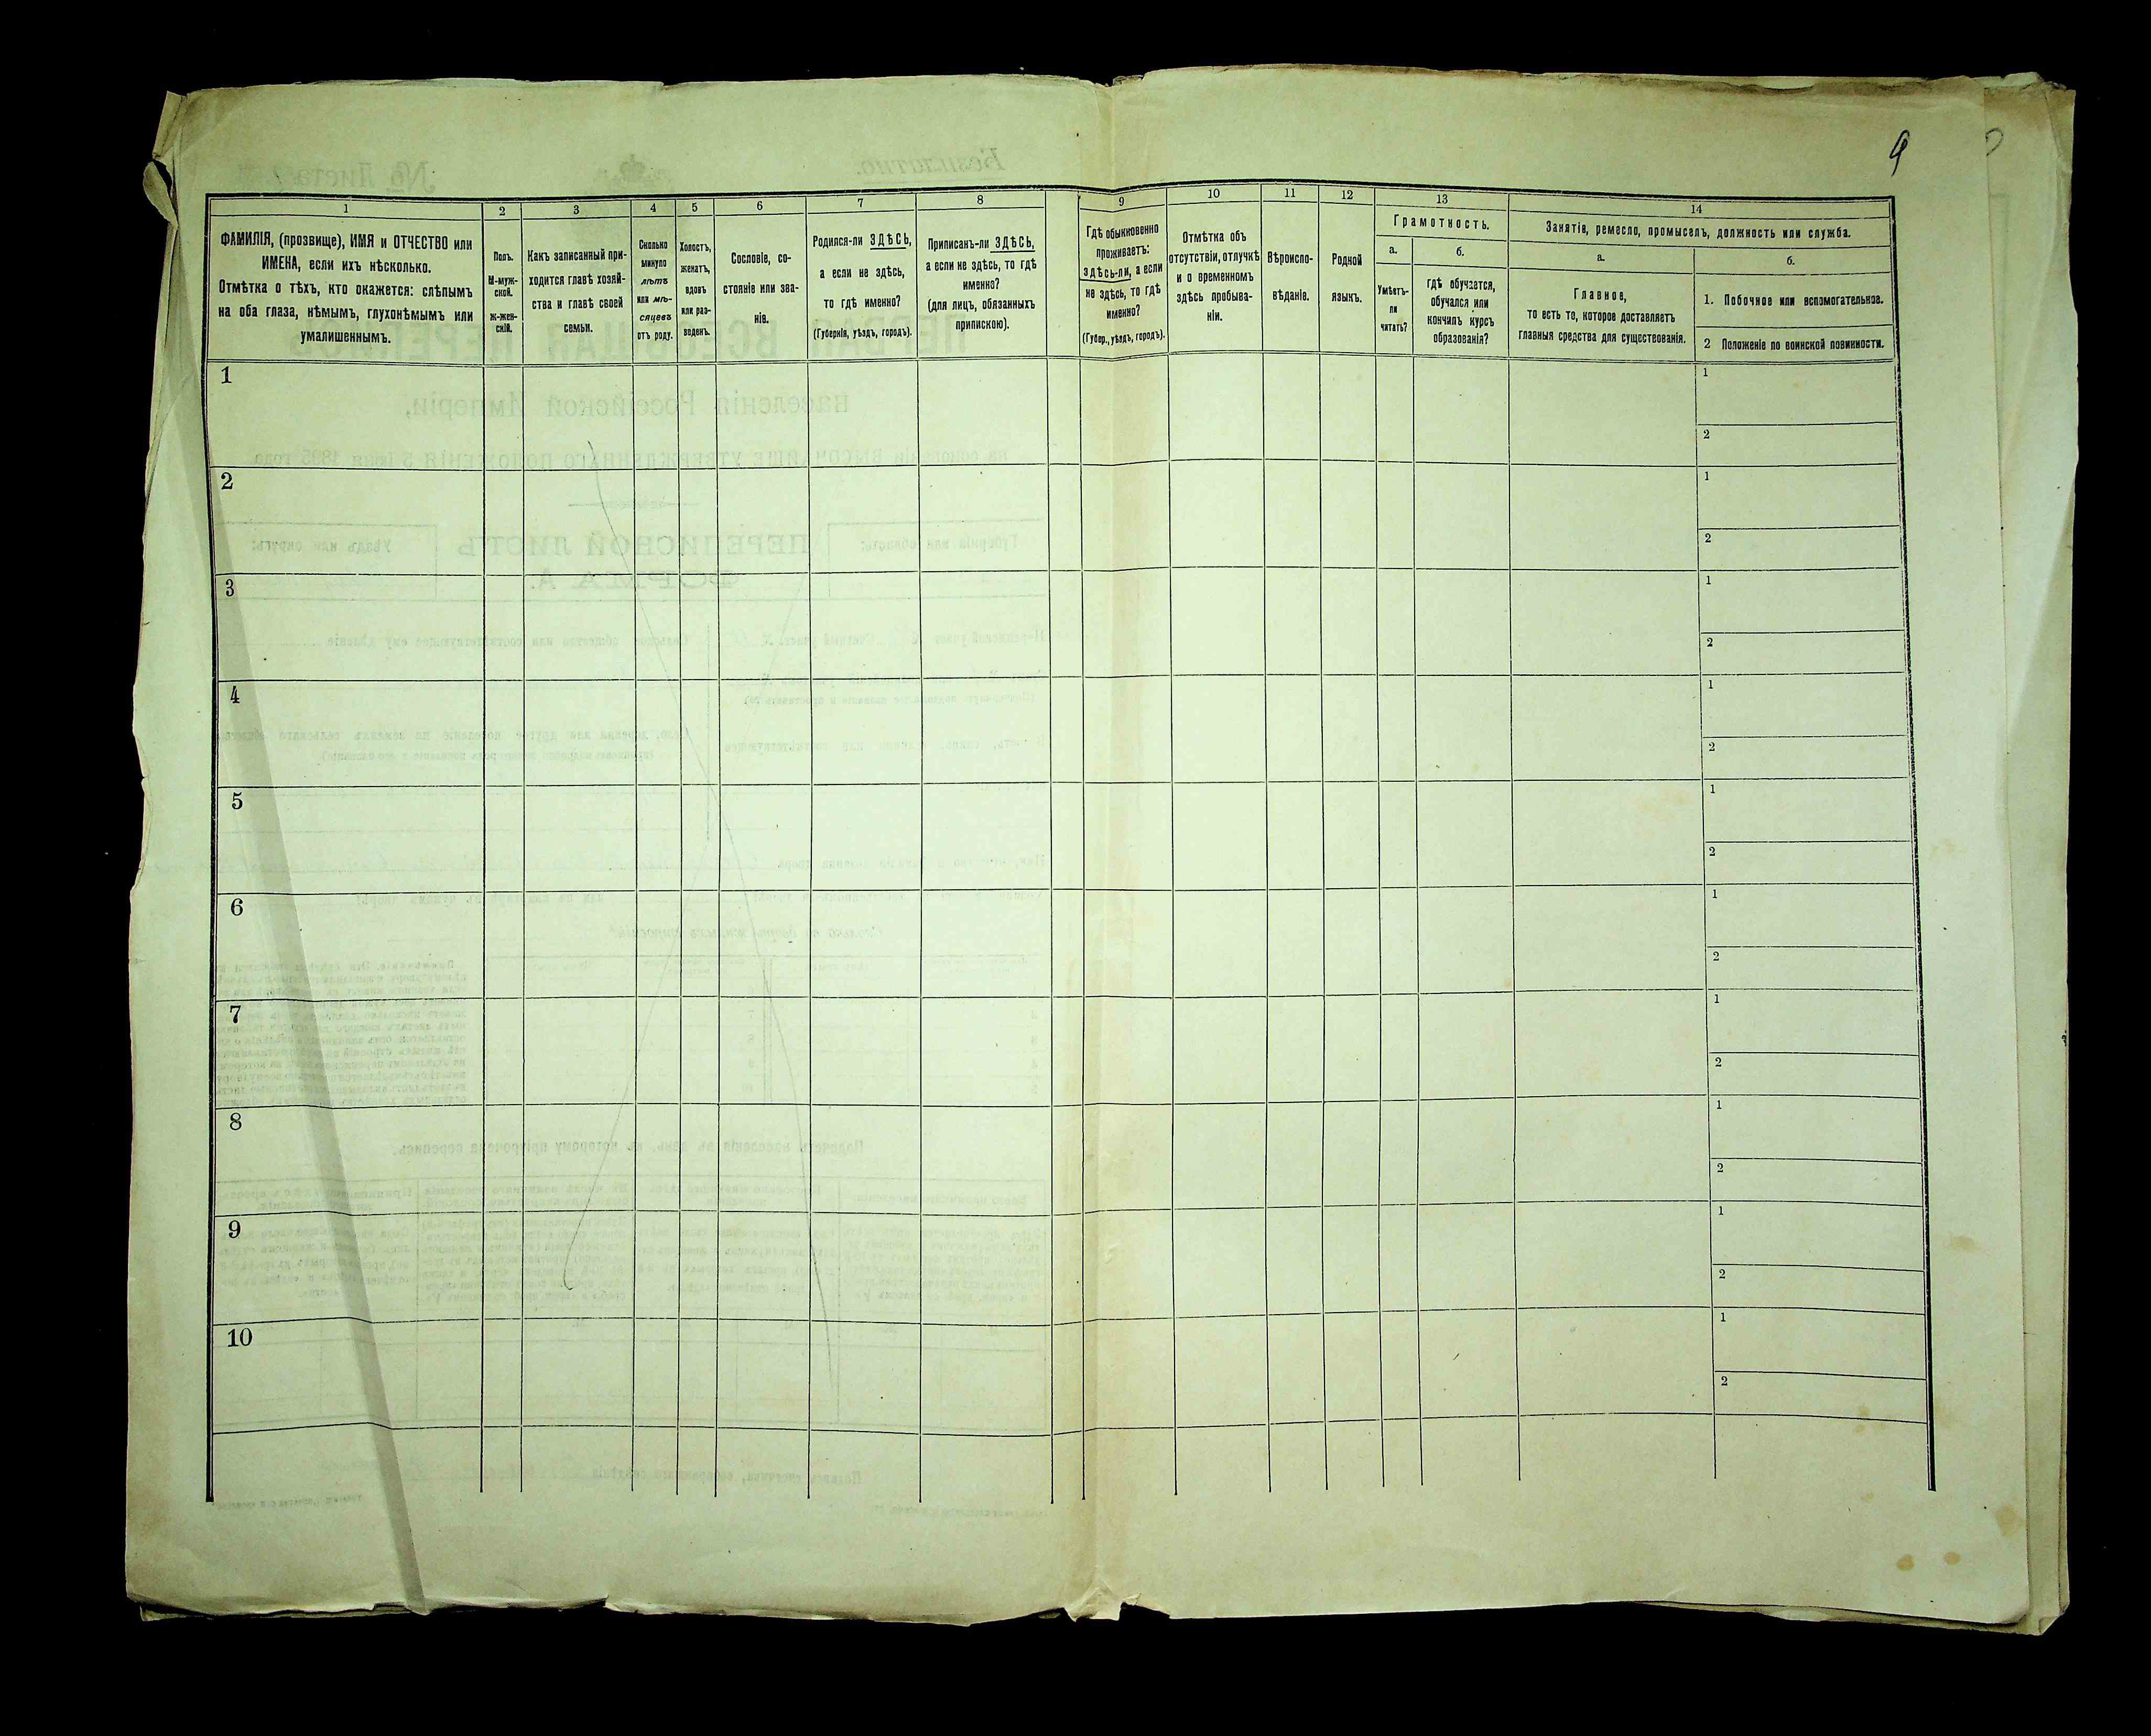 9
1
2
3
4
5
6
7
8
9
10
11
12
13
14
ФАМИЛІЯ, (прозвище), ИМЯ и ОТЧЕСТВО или
ИМЕНА, если ихъ нѣсколько.
Отмѣтка о тѣхъ, кто окажется: слѣпымъ
на оба глаза, нѣмымъ, глухонѣмымъ или
умалишеннымъ.
Полъ.
М-муж-
ской.
Ж-жен-
скій.
Какъ записанный при-
ходится главѣ хозяй-
ства и главѣ своей
семьи.
Сколько
минуло
лѣтъ
или мѣ-
сяцевъ
отъ роду.
Холостъ,
женатъ,
вдовъ
или раз-
веденъ.
Сословіе, со-
стояніе или зва-
ніе.
Родился-ли ЗДѢСЬ,
а если не здѣсь,
то гдѣ именно?
(Губернія, уѣздъ, городъ).
Приписанъ-ли ЗДѢСЬ,
а если не здѣсь, то гдѣ
именно?
(для лицъ, обязанныхъ
припискою).
Гдѣ обыкновенно
проживаетъ:
здѣсь-ли, а если
не здѣсь, то гдѣ
именно?
(Губер., уѣздъ, городъ).
Отмѣтка объ
отсутствіи, отлучкѣ
и о временномъ
здѣсь пребыва-
ніи.
Вѣроиспо-
вѣданіе.
Родной
языкъ.
Грамотность.
а.
Умѣетъ-
ли
читать?
б.
гдѣ обучается,
обучался или
кончилъ курсъ
образованія?
Занятіе, ремесло, промыселъ, должность или служба.
а.
Главное,
то есть то, которое доставляетъ
главныя средства для существованія.
б.
1. Побочное или вспомогательное.
2 Положеніе по воинской повинности.
1
1
2
2
1
2
3
1
2
4
1
2
5
1
2
6
1
2
7
1
2
8
1
2
9
1
2
10
1
2